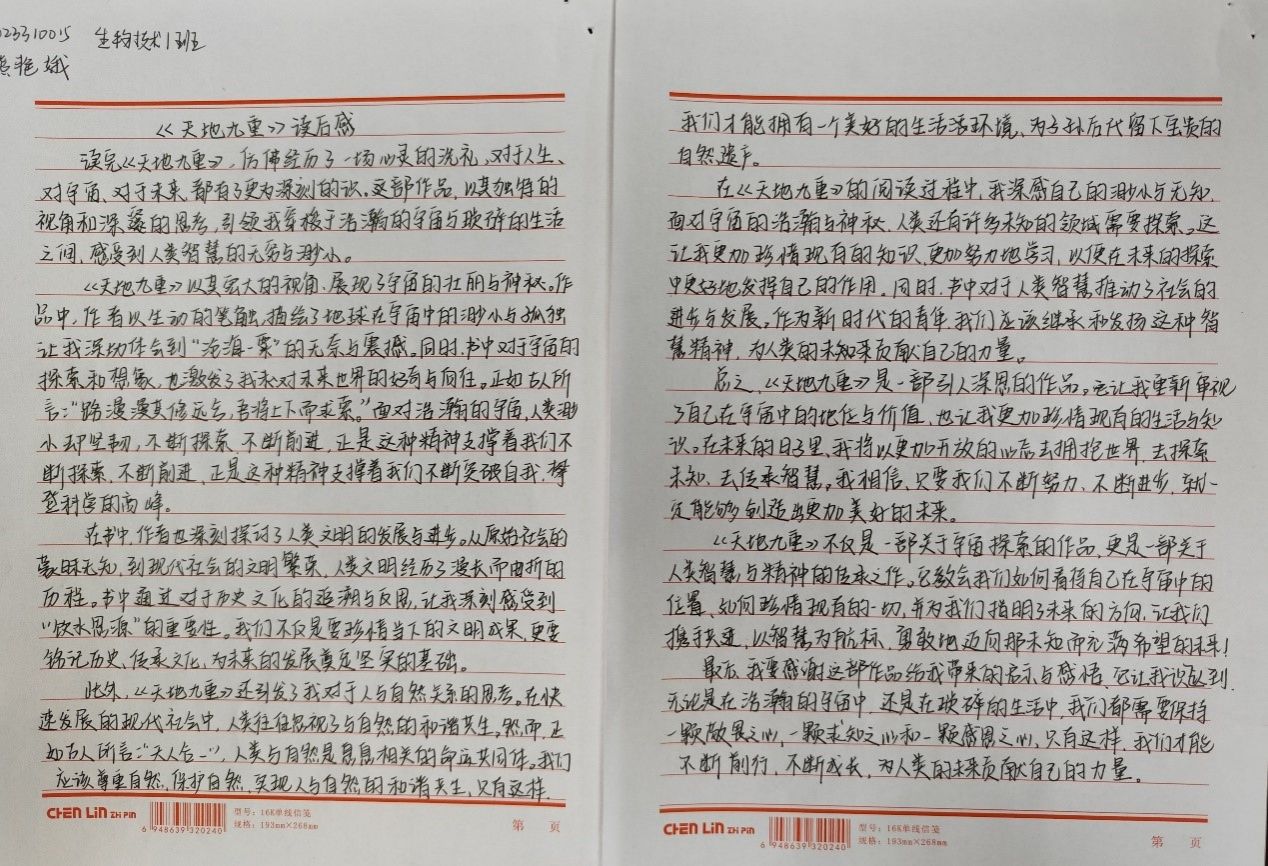 023310015 生物技术1班
艳娥
《天地九重》读后感
读完《天地九重》，仿佛经历了一场心灵的洗礼，对于人生、
对宇宙、对于未来，都有了更为深刻的识。这部作品，以其独特的
视角和深邃的思考，引领我穿梭于浩瀚的宇宙与琐碎的生活
之间，感受到人类智慧的无穷与渺小。
《天地九重》以其宏大的视角，展现了宇宙的壮丽与神秘。作
品中，作者以生动的笔触，描绘了地球在宇宙中的渺小与孤独
让我深切体会到“沧海一粟”的无奈与震撼。同时，书中对于宇宙的
探索和想象，也激发了我永对未来世界的好奇与向往。正如古人所
言：“路漫漫其修远兮，吾将上下而求索。”面对浩瀚的宇宙，人类渺
小却坚韧，不断探索，不断前进，正是这种精神支撑着我们不
断探索，不断前进，正是这种精神支撑着我们不断突破自我，攀
登科学的高峰。
在书中，作者也深刻探讨了人类文明的发展与进步。从原始社会的
蒙昧无知，到现代社会的文明繁荣，人类文明经历了漫长而曲折的
历程。书中通过对于历史文化的追溯与反思，让我深刻感受到
“饮水思源”的重要性。我们不仅是要珍惜当下的文明成果，更要
铭记历史、传承文化，为未来的发展奠定坚实的基础。
此外，《天地九重》还引发了我对于人与自然关系的思考。在快
速发展的现代社会中，人类往往忽视了与自然的和谐共生。然而，正
如古人所言：“天人合一”，人类与自然是息息相关的命运共同体。我们
应该尊重自然，保护自然，实现人与自然的和谐共生，只有这样，
CHEN LIN ZHI PIN
6 948639 320240
型号：16K单线信笺
规格：193mm×268mm
第 页
我们才能拥有一个美好的生活活环境，为子孙后代留下宝贵的
自然遗产。
在《天地九重》的阅读过程中，我深感自己的渺小与无知，
面对宇宙的浩瀚与神秘，人类还有许多未知的领域需要探索。这
让我更加珍惜现有的知识，更加努力地学习，以便在未来的探索
中更好地发挥自己的作用。同时，书中对于人类智慧推动了社会的
进步与发展。作为新时代的青年，我们应该继承和发扬这种智
慧精神，为人类的未知来贡献自己的力量。
总之，《天地九重》是一部引人深思的作品。它让我重新审视
了自己在宇宙中的地位与价值，也让我更加珍惜现有的生活与知
识。在未来的日子里，我将以更加开放的心态去拥抱世界，去探索
未知，去传承智慧。我相信，只要我们不断努力，不断进步，就一
定能够创造出更加美好的未来。
《天地九重》不仅是一部关于宇宙探索的作品，更是一部关于
人类智慧与精神的传承之作。它教会我们如何看待自己在宇宙中的
位置，如何珍惜现有的一切，并为我们指明了未来的方向，让我们
携手共进，以智慧为航标，勇敢地迈向那未知而充满希望的未来！
最后，我要感谢这部作品给我带来的启示与感悟，它让我认识到，
无论是在浩瀚的宇宙中，还是在琐碎的生活中，我们都需要保持
一颗敬畏之心，一颗求知之心和一颗感恩之心，只有这样，我们才能
不断前行，不断成长，为人类的未来贡献自己的力量。
CHEN LIN ZHI PIN
6 948639 320240
型号：16K单线信笺
规格：193mm×268mm
第 页